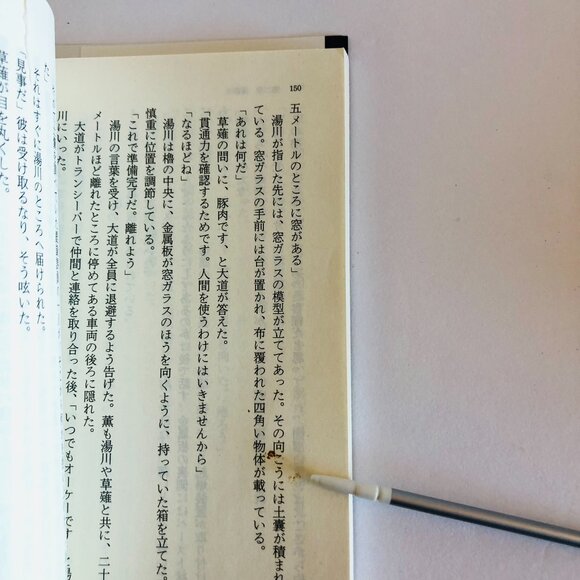 150
五メートルのところに窓がある」
湯川が指した先には、窓ガラスの模型が立ててあった。その向こうには土嚢が積まれ
ている。窓ガラスの手前には台が置かれ、布に覆われた四角い物体が載っている。
「あれは何だ」
草薙の問いに、豚肉です、と大道が答えた。
「貫通力を確認するためです。人間を使うわけにはいきませんから」
「なるほどね」
湯川は櫓の中央に、金属板が窓ガラスのほうを向くように、持っていた箱を立てた。
慎重に位置を調節している。
「これで準備完了だ。離れよう」
湯川の言葉を受け、大道が全員に退避するよう告げた。薫も湯川や草薙と共に、二十
メートルほど離れたところに停めてある車両の後ろに隠れた。
大道がトランシーバーで仲間と連絡を取り合った後、「いつでもオーケーです
川にいった。
それはすぐに湯川のところへ届けられた。
「見事だ」彼は受け取るなり、そう呟いた。
草薙が目を丸くした。